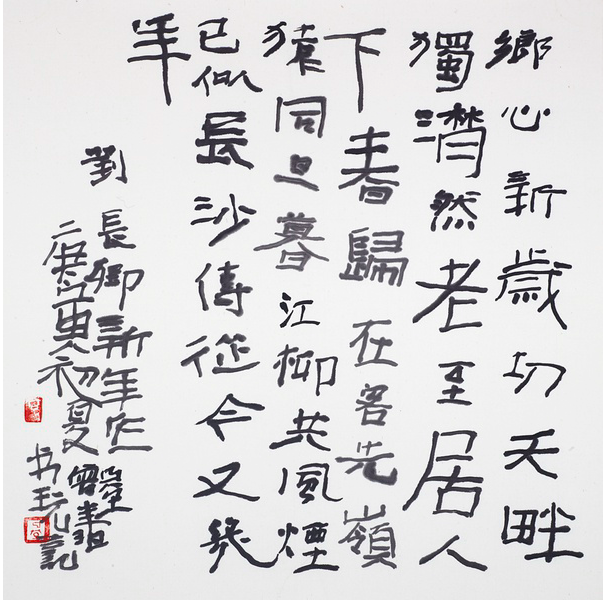 鄉心新歲切天畔
獨潸然老至居人
下春歸在客先嶺
猿同旦暮江柳共風煙
已似長沙傅從今又幾
年
劉長卿新年作
庚寅初夏